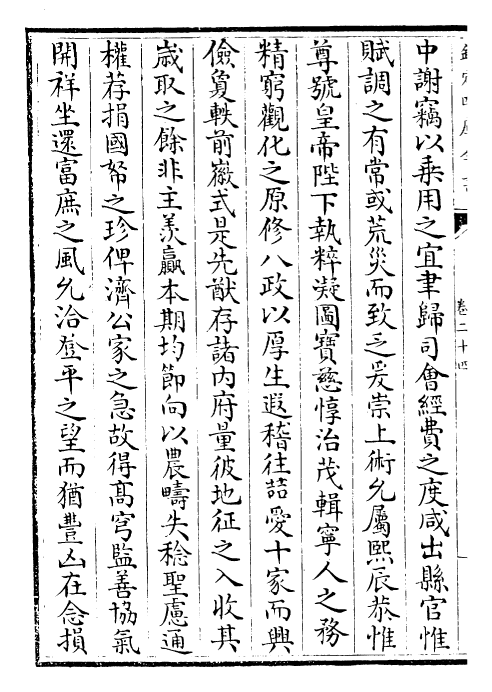 卷二十四
中謝竊以乗用之宜聿歸司會經費之度咸出縣官惟
賦調之有常或荒災而致乏爰崇上術允屬熙辰恭惟
尊號皇帝陛下執粹凝圖寳慈惇治茂輯寧人之務
精窮觀化之原修八政以厚生遐稽往喆愛十家而興
儉夐軼前徽式是先猷存諸内府量彼地征之入收其
歳取之餘非主羡贏本期均節向以農疇失稔聖慮通
權荐捐國帑之珍俾濟公家之急故得髙穹監善協氣
開祥坐還富庶之風允洽登平之望而猶豐凶在念損